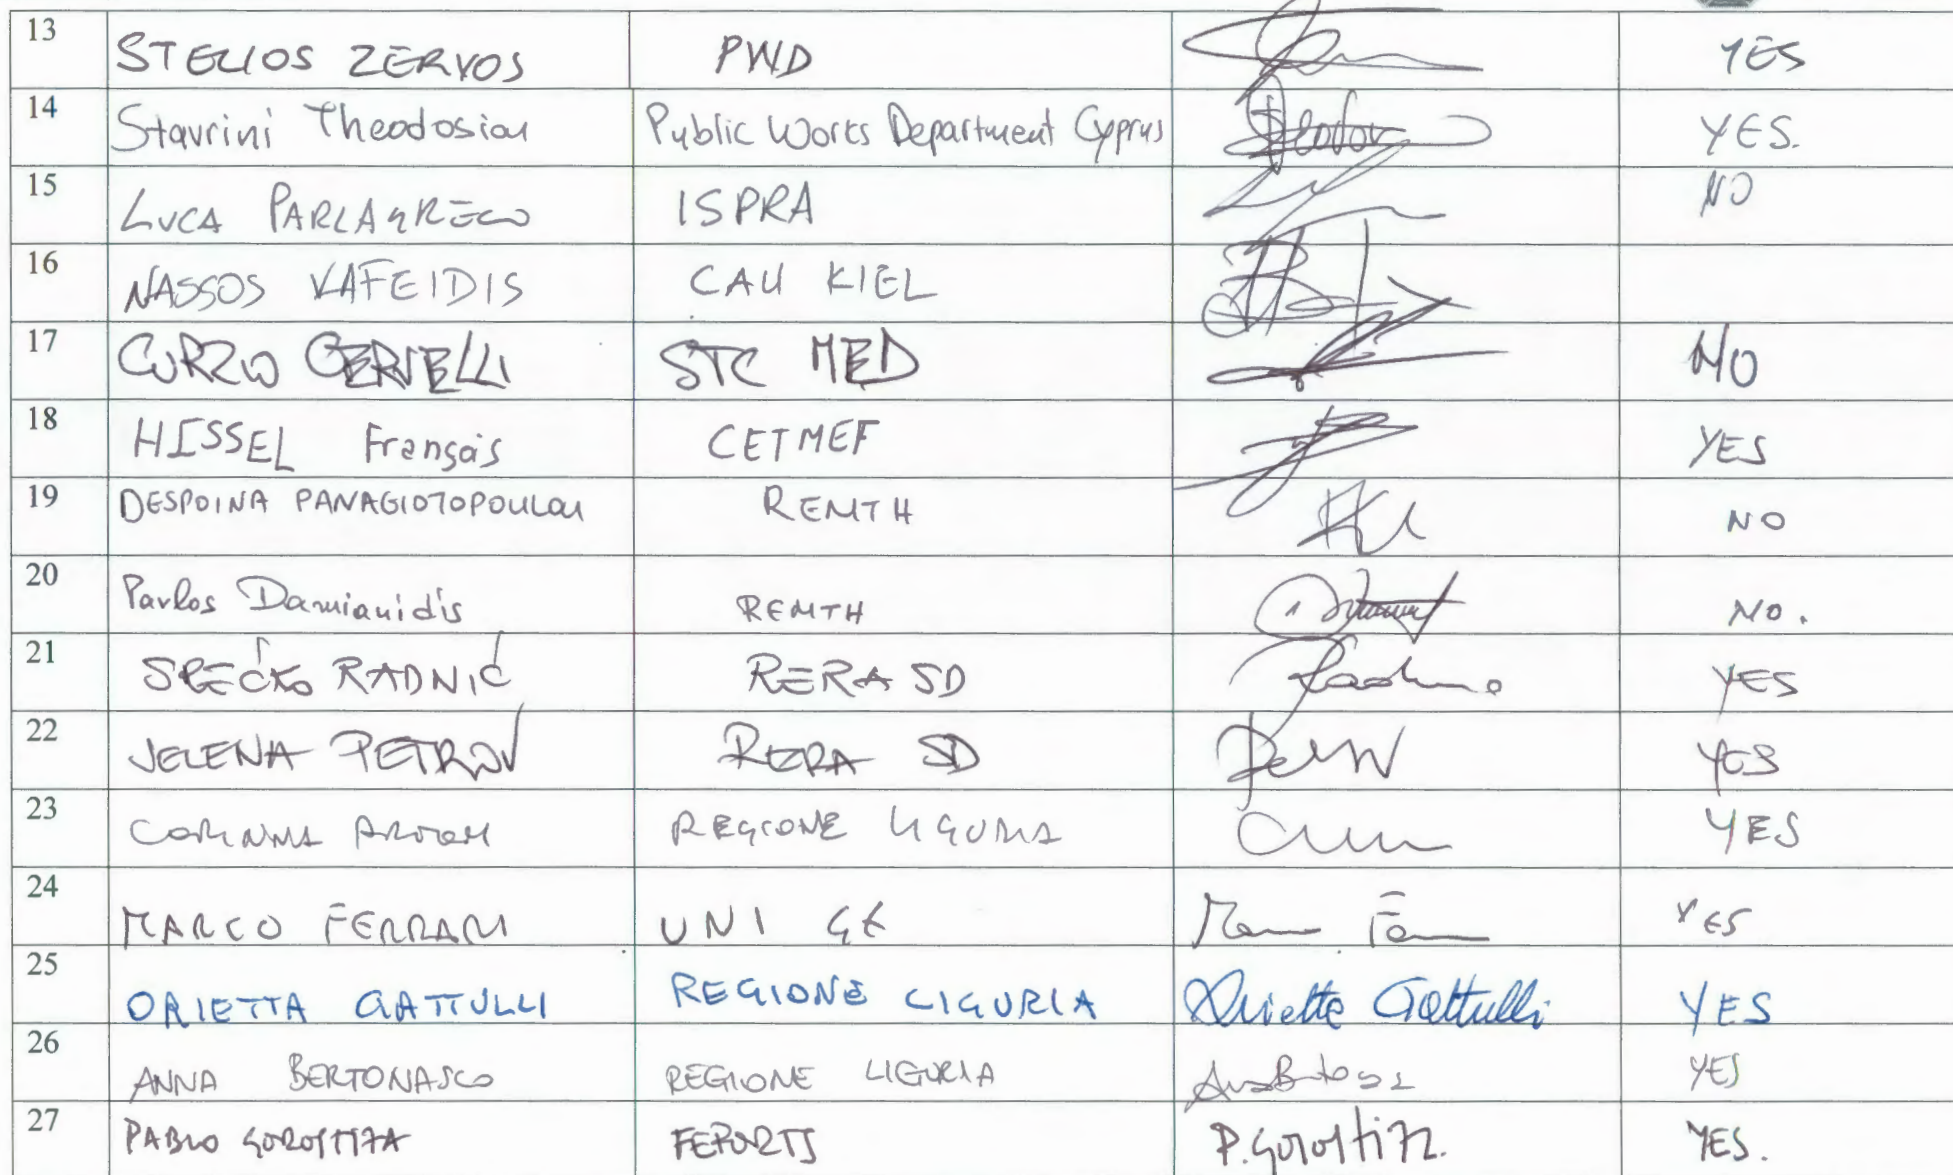 13 STELIOS ZERVOS PWD YES
14 Stavrini Theodosiou Public Works Department Cyprus YES.
15 LUCA PARLAGRECO ISPRA NO
16 NASSOS VAFEIDIS CAU KIEL
17 CURZIO CERVELLI STC MED NO
18 HISSEL François CETMEF YES
19 DESPOINA PANAGIOTOPOULOU REMTH NO
20 Pavlos Damianidis REMTH NO.
21 SREĆKO RADNIĆ RERA SD YES
22 JELENA PETROV RERA SD YES
23 CORINNA REGIONE LIGURIA YES
24 MARCO FERRARI UNI GE YES
25 ORIETTA GATTULLI REGIONE LIGURIA Orietta Gattulli YES
26 ANNA BERTONASCO REGIONE LIGURIA YES
27 PABLO GOROSTIZA FEPORTS P. Gorostiza. YES.